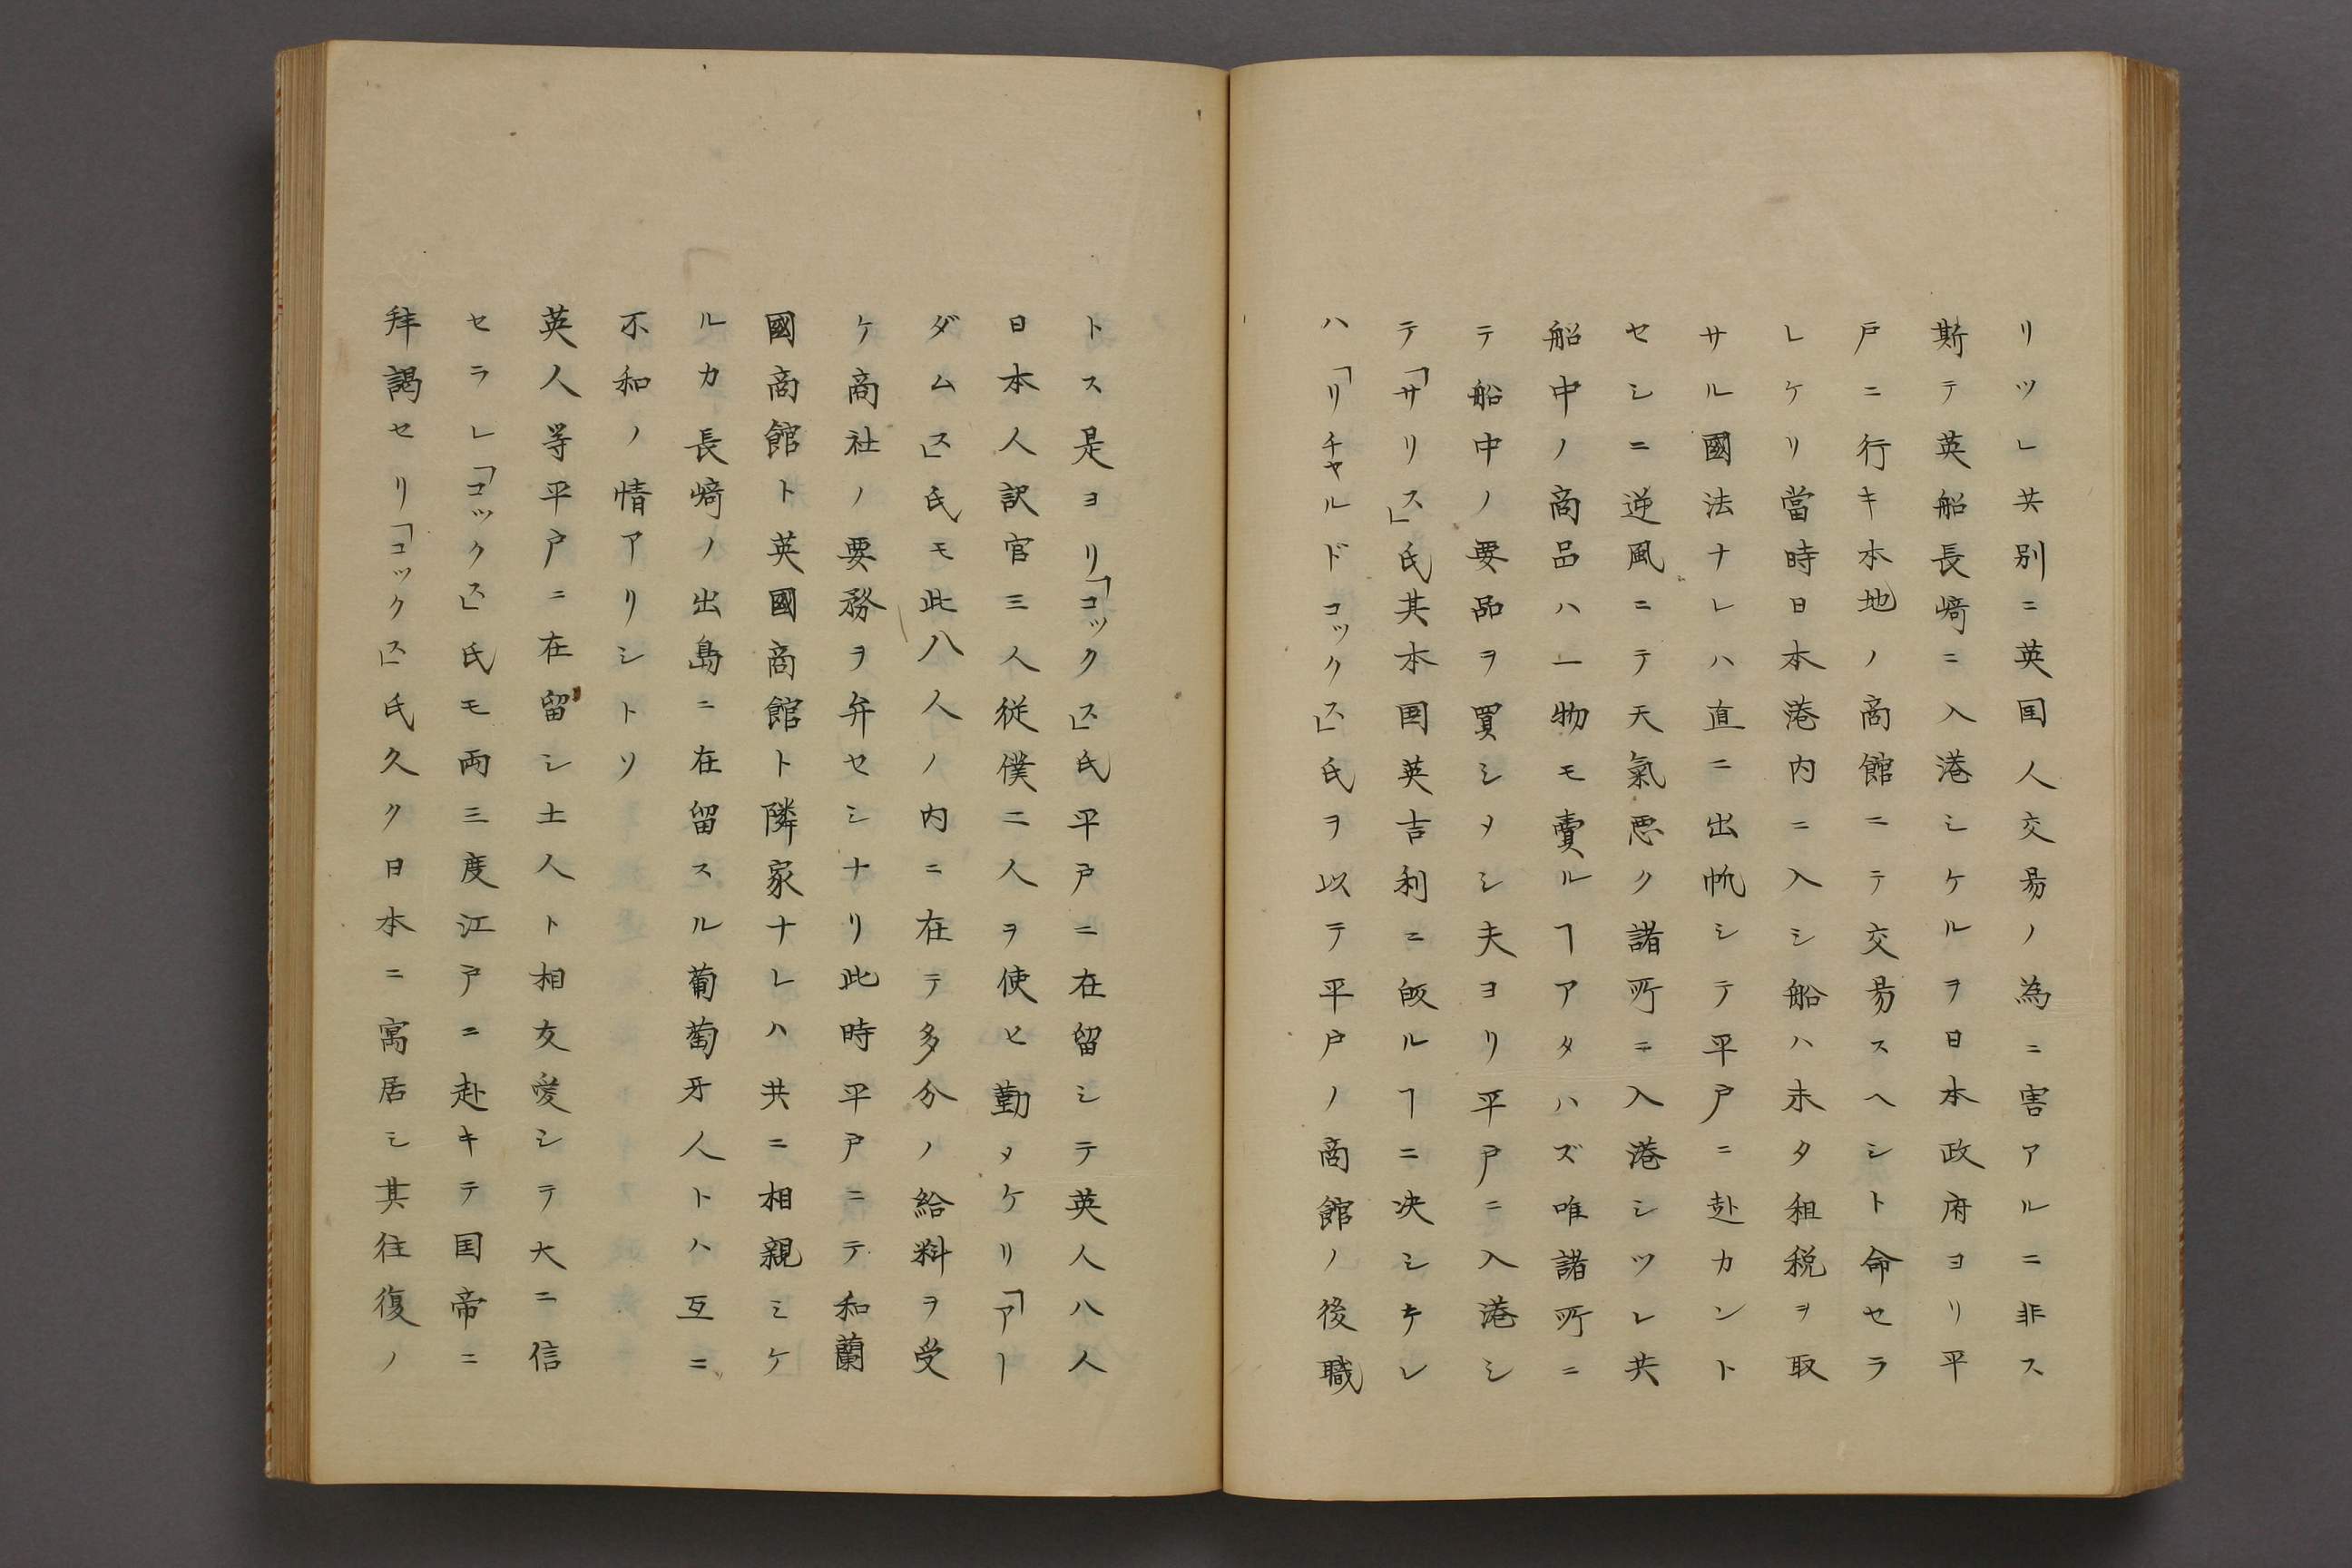 リツレ共別ニ英国人交易ノ為ニ害アルニ非ス
斯テ英船長崎ニ入港シケルヲ日本政府ヨリ平
戸ニ行キ本地ノ商館ニテ交易スヘシト命セラ
レケリ當時日本港内ニ入シ船ハ未タ租税ヲ取
サル國法ナレハ直ニ出帆シテ平戸ニ赴カント
セシニ逆風ニテ天氣悪ク諸所ニ入港シツレ共
船中ノ商品ハ一物モ賣ルヿアタハズ唯諸所ニ
テ船中ノ要品ヲ買シメシ夫ヨリ平戸ニ入港シ
テ「サリス」氏其本国英吉利ニ皈ルヿニ决シケレ
ハ「リチャルドコックス」氏ヲ以テ平戸ノ商館ノ後職
トス是ヨリ「コックス」氏平戸ニ在留シテ英人八人
日本人訳官三人従僕二人ヲ使ヒ勤メケリ「アー
ダムス」氏モ此八人ノ内ニ在テ多分ノ給料ヲ受
ケ商社ノ要務ヲ弁セシナリ此時平戸ニテ和蘭
國商館ト英國商館ト隣家ナレハ共ニ相親シケ
ルカ長﨑ノ出島ニ在留スル葡萄牙人トハ互ニ
不和ノ情アリシトソ
英人等平戸ニ在留シ土人ト相友愛シテ大ニ信
セラレ「コックス」氏モ両三度江戸ニ赴キテ国帝ニ
拜謁セリ「コックス」氏久ク日本ニ寓居シ其往復ノ